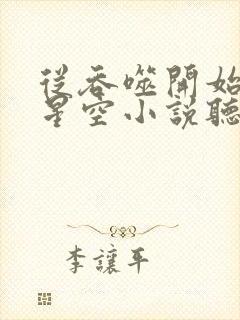 從吞噬開始
星空小說聽
李讓平